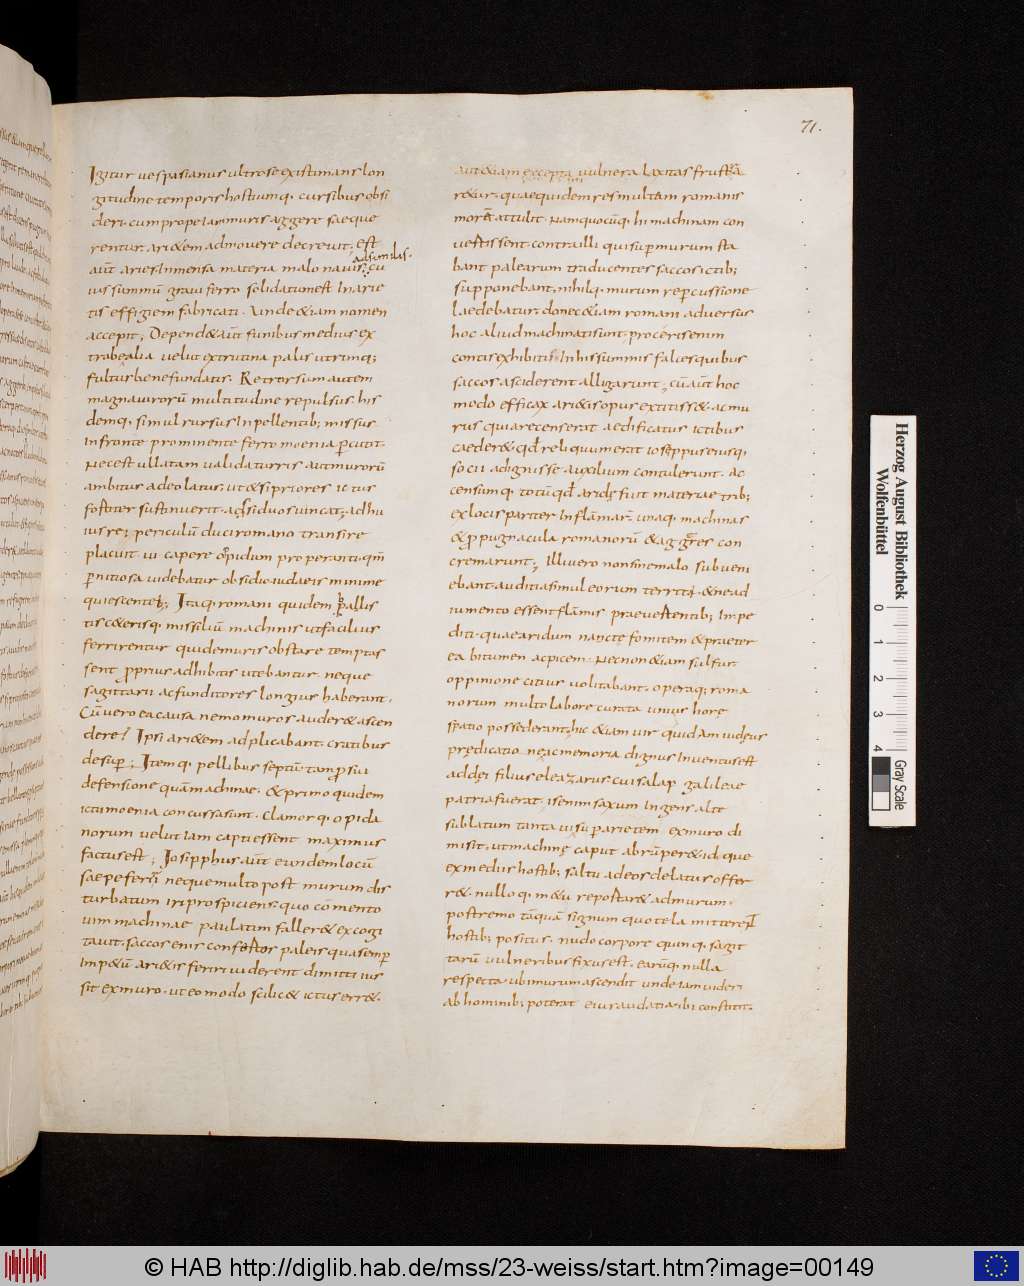 71.
Igitur uespasianus ultro se existimans lon
gitudine temporis hostiumq; cursibus obsi
deri. cum prope iam muris aggere saeque
rentur. ari&em admouere decreuit; est
adsimilis.
aut̄ aries. Inmensa materia malo nauis; cu
ius summū graui ferro solidatum est In arie
tis effigiem fabricati. Unde &iam nomen
accepit; Depend& aut̄ funibus medius ex
trabe alia uelut ex trutina palis utrimq;
fultus bene fundatis. Retrorsum autem
magna uirorū multitudine repulsus. his
demq; simul rursus Inpellentib; missus
In fronte prominente ferro moenia p̱cutit.
Nec est ulla tam ualida turris aut murorū
ambitus adeo latus. ut & si priores ictus
fortiter sustinuerit. adsiduos uincat; ad hu
ius rei periculū duci romano transire
placuit ui capere oppidum properanti. qm̄
p̱nitiosa uidebatur obsidio iudaeis minime
quiescentib; Itaq; romani quidem ballis
tis c&erisq; missiliū machinis ut facilius
ferrirentur qui de muris obstare temptas
sent proprius adhibitis utebantur. neque
sagittarii ac funditores longius haberant.
Cū uero ea causa nemo muros auder& ascen
dere! Ipsi ari&em adplicabant. cratibus
desup̱; Itemq; pellibus septū tam p̱ sui
defensione quā machinae. & primo quidem
ictu moenia concussa sunt. Clamorq; opida
norum uelut iam capti essent maximus
factus est; Iosipphus aut̄ eundem locū
saepe feriri neque multo post murum dis
turbatum iri prospiciens. quo cōmento
uim machinae paulatim faller& excogi
tauit. saccos enis confertos paleis qua semp̱
Imp&ū ari&is ferri uiderent dimitti ius
sit ex muro. ut eo modo scilic& ictus err&.
aut &iam excepta uulnera laxitas frustra
r&ur. quae quidem res multam romanis
morā attulit. Nam quocūq; hi machinam con
uertissent. contra illi qui sup̱ murum sta
bant palearum traducentes saccos ictib;
supponebant. nihilq; murum rep̱cussione
laedebatur. donec &iam romani aduersus
hoc aliud machinati sunt. proceris enim
contis exhibitis. In his summis falces quibus
saccos asciderent alligarunt; cū aut̄ hoc
modo efficax ari&is opus extitiss&. ac mu
rus qui a recens erat aedificatus ictibus
caeder&. qd̄ reliquum erat ioseppus eiusq;
socii ad ignis se auxilium contulerunt. ac
censumq; totū qd̄ aridę fuit materiae trib;
ex locis pariter Inflāmar̄. unaq; machinas
& p̱pugnacula romanorū & aggeres con
cremarunt; Illi uero non sine malo subueni
ebant. audiīti a simul eorum territi. & ne ad
iumento essent flāmis praeuertentib; Impe
diti. quae aridum nanctę fomitem & praeter
ea bitumen ac picem. Nec non &iam sulfur.
oppinione citius uolitabant. operaq; roma
norum multo labore curata unius horę
spatio possederant; hic &iam uir quidam iudęus
prędicatione ac memoria dignus Inuentus est
addęi filius eleazarus cui salap galileae
patria fuerat. is enim saxum Ingens alte
sublatum tanta ui sup̱ parietem ex muro di
misit. ut machinę caput abrūper&. id que
ex mediis hostib; saltu adeo rs delatus offer
r&. nulloq; m&u reportar& ad murum.
postremo tāquā signum quo tela mitterent
hostib; positus. nudo corpore quinq; sagit
tarū uulneribus fixus est. earūq; nulla
respecta ubi murum ascendit unde iam uideri
ab hominib; poterat eius audatia. ibi constitit.
Herzog August Bibliothek
Wolfenbüttel
0 1 2 3 4
Gray Scale
© HAB http://diglib.hab.de/mss/23-weiss/start.htm?image=00149